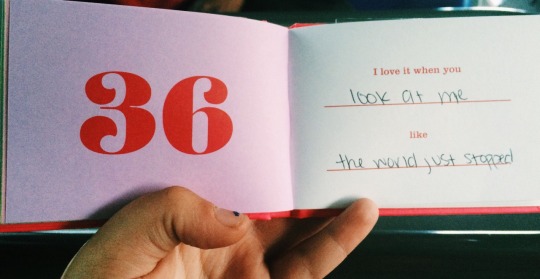 36
I love it when you
look at me
like
the world just stopped